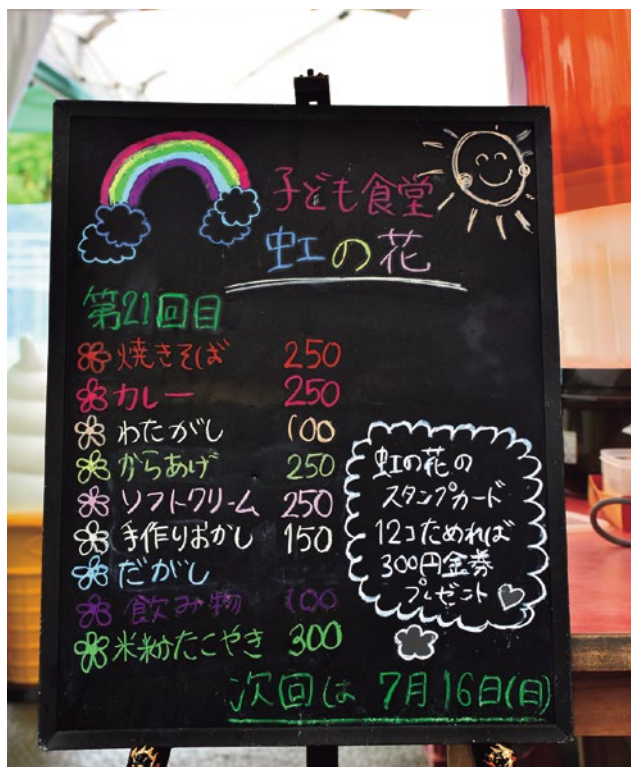 子ども食堂
虹の花
第21回目
焼きそば 250
カレー 250
わたがし 100
からあげ 250
ソフトクリーム 250
手作りおかし 150
だがし
飲み物 100
米粉たこやき 300
虹の花の
スタンプカード
12コためれば
300円金券
プレゼント
次回は 7月16日(日)